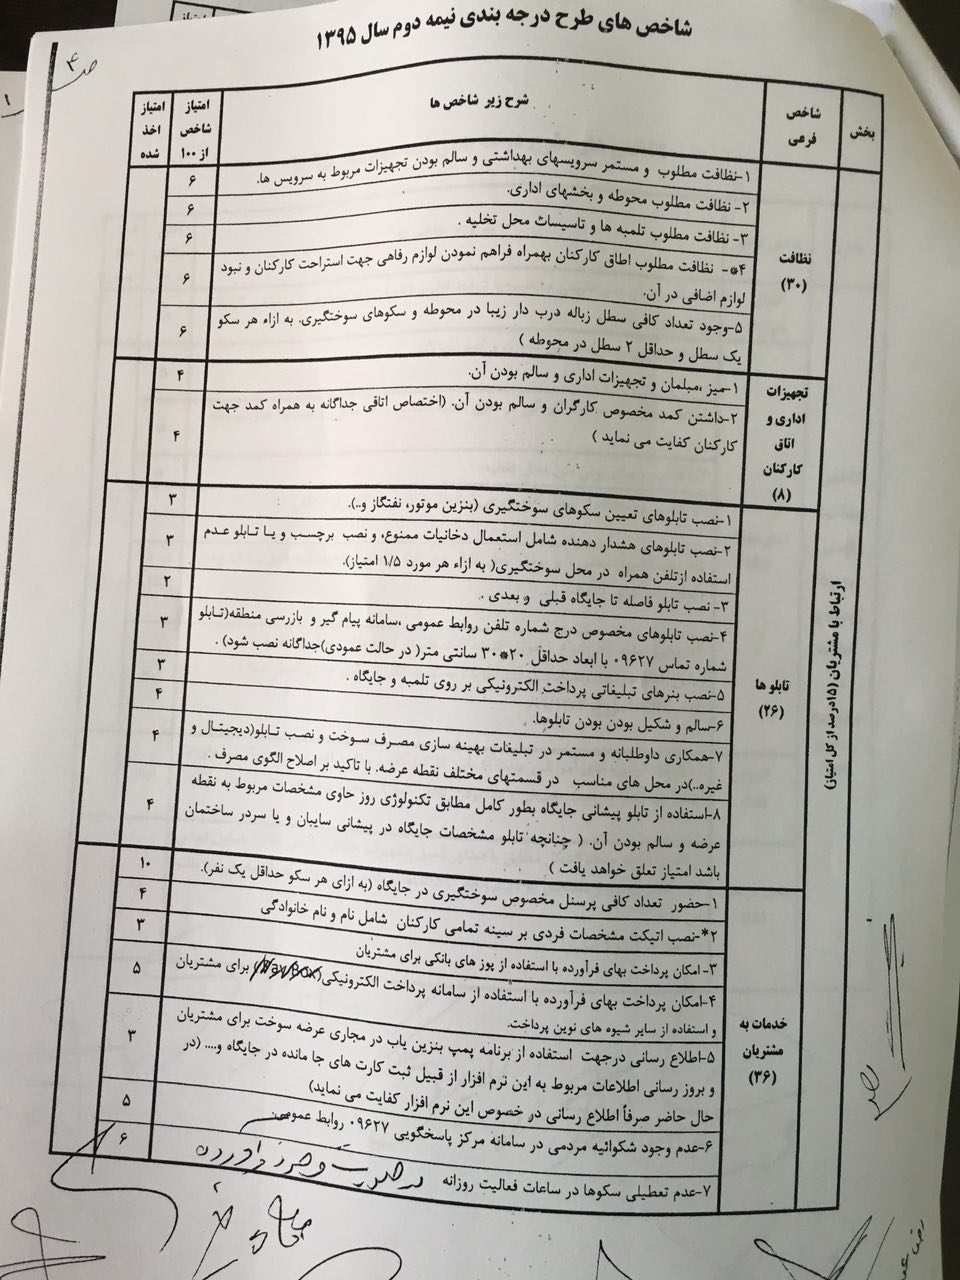 شاخص های طرح درجه بندی نیمه دوم سال ۱۳۹۵
ص ۴
بخش
شاخص فرعی
شرح زیر شاخص ها
امتیاز شاخص از ۱۰۰
امتیاز اخذ شده
ارتباط با مشتریان (۱۵درصد از کل امتیاز)
نظافت (۳۰)
۱-نظافت مطلوب و مستمر سرویسهای بهداشتی و سالم بودن تجهیزات مربوط به سرویس ها.
۶
۲- نظافت مطلوب محوطه و بخشهای اداری.
۶
۳- نظافت مطلوب تلمبه ها و تاسیسات محل تخلیه .
۶
۴*- نظافت مطلوب اطاق کارکنان بهمراه فراهم نمودن لوازم رفاهی جهت استراحت کارکنان و نبود
لوازم اضافی در آن.
۶
۵-وجود تعداد کافی سطل زباله درب دار زیبا در محوطه و سکوهای سوختگیری. به ازاء هر سکو
یک سطل و حداقل ۲ سطل در محوطه )
۶
تجهیزات اداری و اتاق کارکنان (۸)
۱-میز ،مبلمان و تجهیزات اداری و سالم بودن آن.
۴
۲-داشتن کمد مخصوص کارگران و سالم بودن آن. (اختصاص اتاقی جداگانه به همراه کمد جهت
کارکنان کفایت می نماید )
۴
تابلو ها (۲۶)
۱-نصب تابلوهای تعیین سکوهای سوختگیری (بنزین موتور، نفتگاز و..).
۳
۲-نصب تابلوهای هشدار دهنده شامل استعمال دخانیات ممنوع، و نصب برچسب و یا تابلو عدم
استفاده ازتلفن همراه در محل سوختگیری( به ازاء هر مورد ۱/۵ امتیاز).
۳
۳- نصب تابلو فاصله تا جایگاه قبلی و بعدی .
۲
۴-نصب تابلوهای مخصوص درج شماره تلفن روابط عمومی ،سامانه پیام گیر و بازرسی منطقه(تابلو
شماره تماس ۰۹۶۲۷ با ابعاد حداقل ۲۰*۳۰ سانتی متر( در حالت عمودی)جداگانه نصب شود) .
۳
۵-نصب بنرهای تبلیغاتی پرداخت الکترونیکی بر روی تلمبه و جایگاه .
۳
۶-سالم و شکیل بودن بودن تابلوها.
۴
۷-همکاری داوطلبانه و مستمر در تبلیغات بهینه سازی مصرف سوخت و نصب تابلو(دیجیتال و
غیره..)در محل های مناسب در قسمتهای مختلف نقطه عرضه. با تاکید بر اصلاح الگوی مصرف .
۴
۸-استفاده از تابلو پیشانی جایگاه بطور کامل مطابق تکنولوژی روز حاوی مشخصات مربوط به نقطه
عرضه و سالم بودن آن. ( چنانچه تابلو مشخصات جایگاه در پیشانی سایبان و یا سردر ساختمان
باشد امتیاز تعلق خواهد یافت )
۴
خدمات به مشتریان (۳۶)
۱-حضور تعداد کافی پرسنل مخصوص سوختگیری در جایگاه (به ازای هر سکو حداقل یک نفر).
۱۰
۲*-نصب اتیکت مشخصات فردی بر سینه تمامی کارکنان شامل نام و نام خانوادگی
۴
۳- امکان پرداخت بهای فرآورده با استفاده از پوز های بانکی برای مشتریان
۳
۴-امکان پرداخت بهای فرآورده با استفاده از سامانه پرداخت الکترونیکی( ) برای مشتریان
و استفاده از سایر شیوه های نوین پرداخت.
۵
۵-اطلاع رسانی درجهت استفاده از برنامه پمپ بنزین یاب در مجاری عرضه سوخت برای مشتریان
و بروز رسانی اطلاعات مربوط به این نرم افزار از قبیل ثبت کارت های جا مانده در جایگاه و.... (در
حال حاضر صرفاً اطلاع رسانی در خصوص این نرم افزار کفایت می نماید)
۳
۶-عدم وجود شکوائیه مردمی در سامانه مرکز پاسخگویی ۰۹۶۲۷ روابط عمومی.
۵
۷-عدم تعطیلی سکوها در ساعات فعالیت روزانه در صورت وجود فرآورده
۶